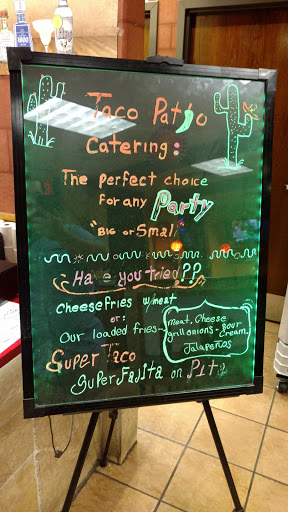 Taco Patio
Catering:
The perfect choice
for any Party
"Big or Small"
Have you tried??
cheese fries w/meat
or:
Our loaded fries~
meat, cheese
grill onions - sour
cream
Jalapeños
Super Taco
Super Fajita on Pita
1800